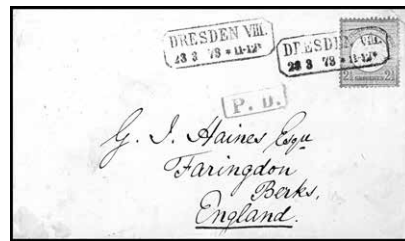 DRESDEN VIII.
23 3 73 * 11-12*
DRESDEN VIII.
23 3 73 * 11-12*
P. D.
G. J. Haines Esqre
Faringdon
Berks.
England.